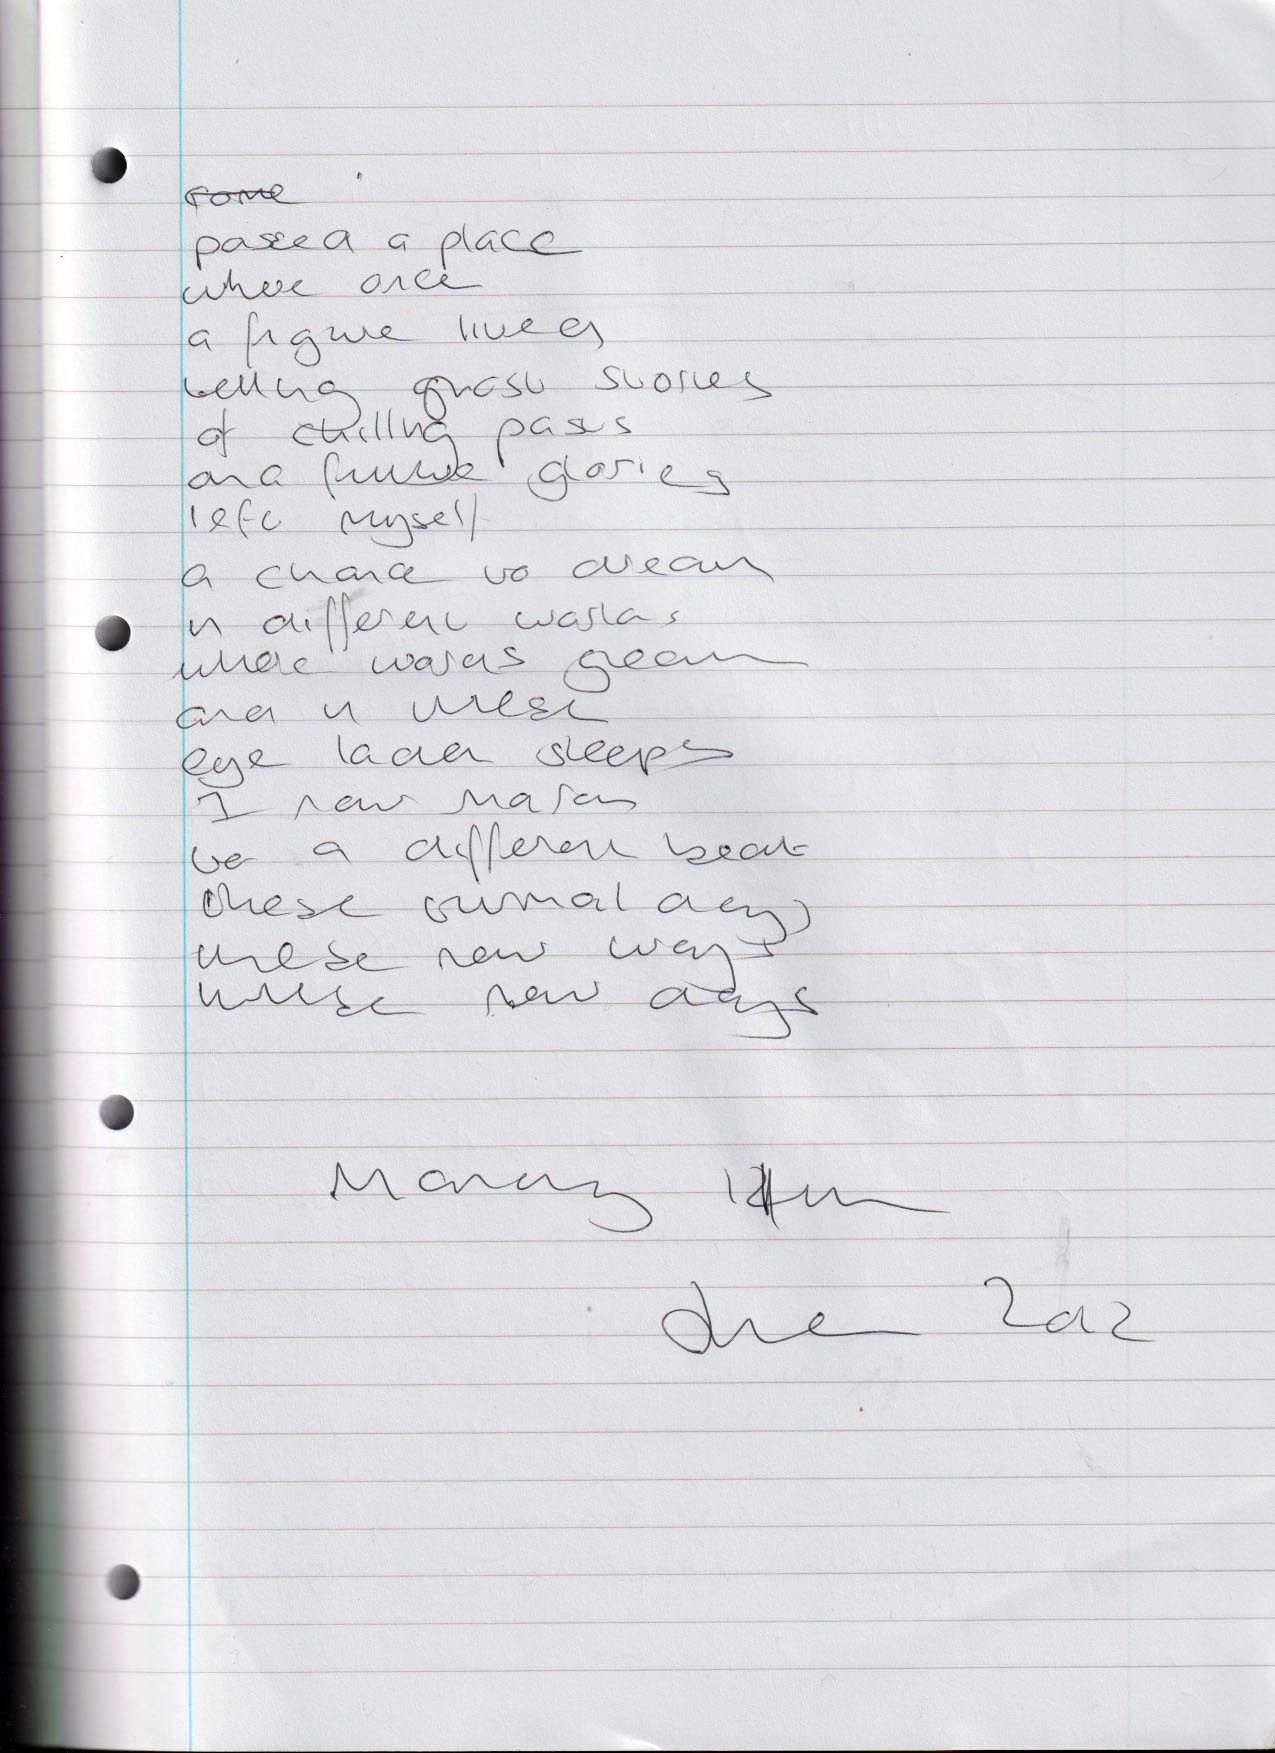 passed a place
where once
a figure lives
telling ghost stories
of chilling pasts
and future glories
left myself
a chance to dream
in different worlds
where words gleam
and in these
eye laden sleeps
I now march
to a different beat
these animal days
these new ways
these new days
June 2012